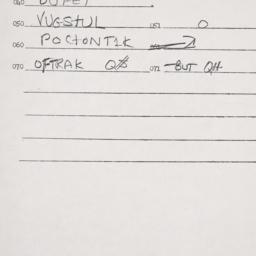 050 VUGSTUL 051 O
060 POCTONTIK
070 OFTRAK 071 BUT QH